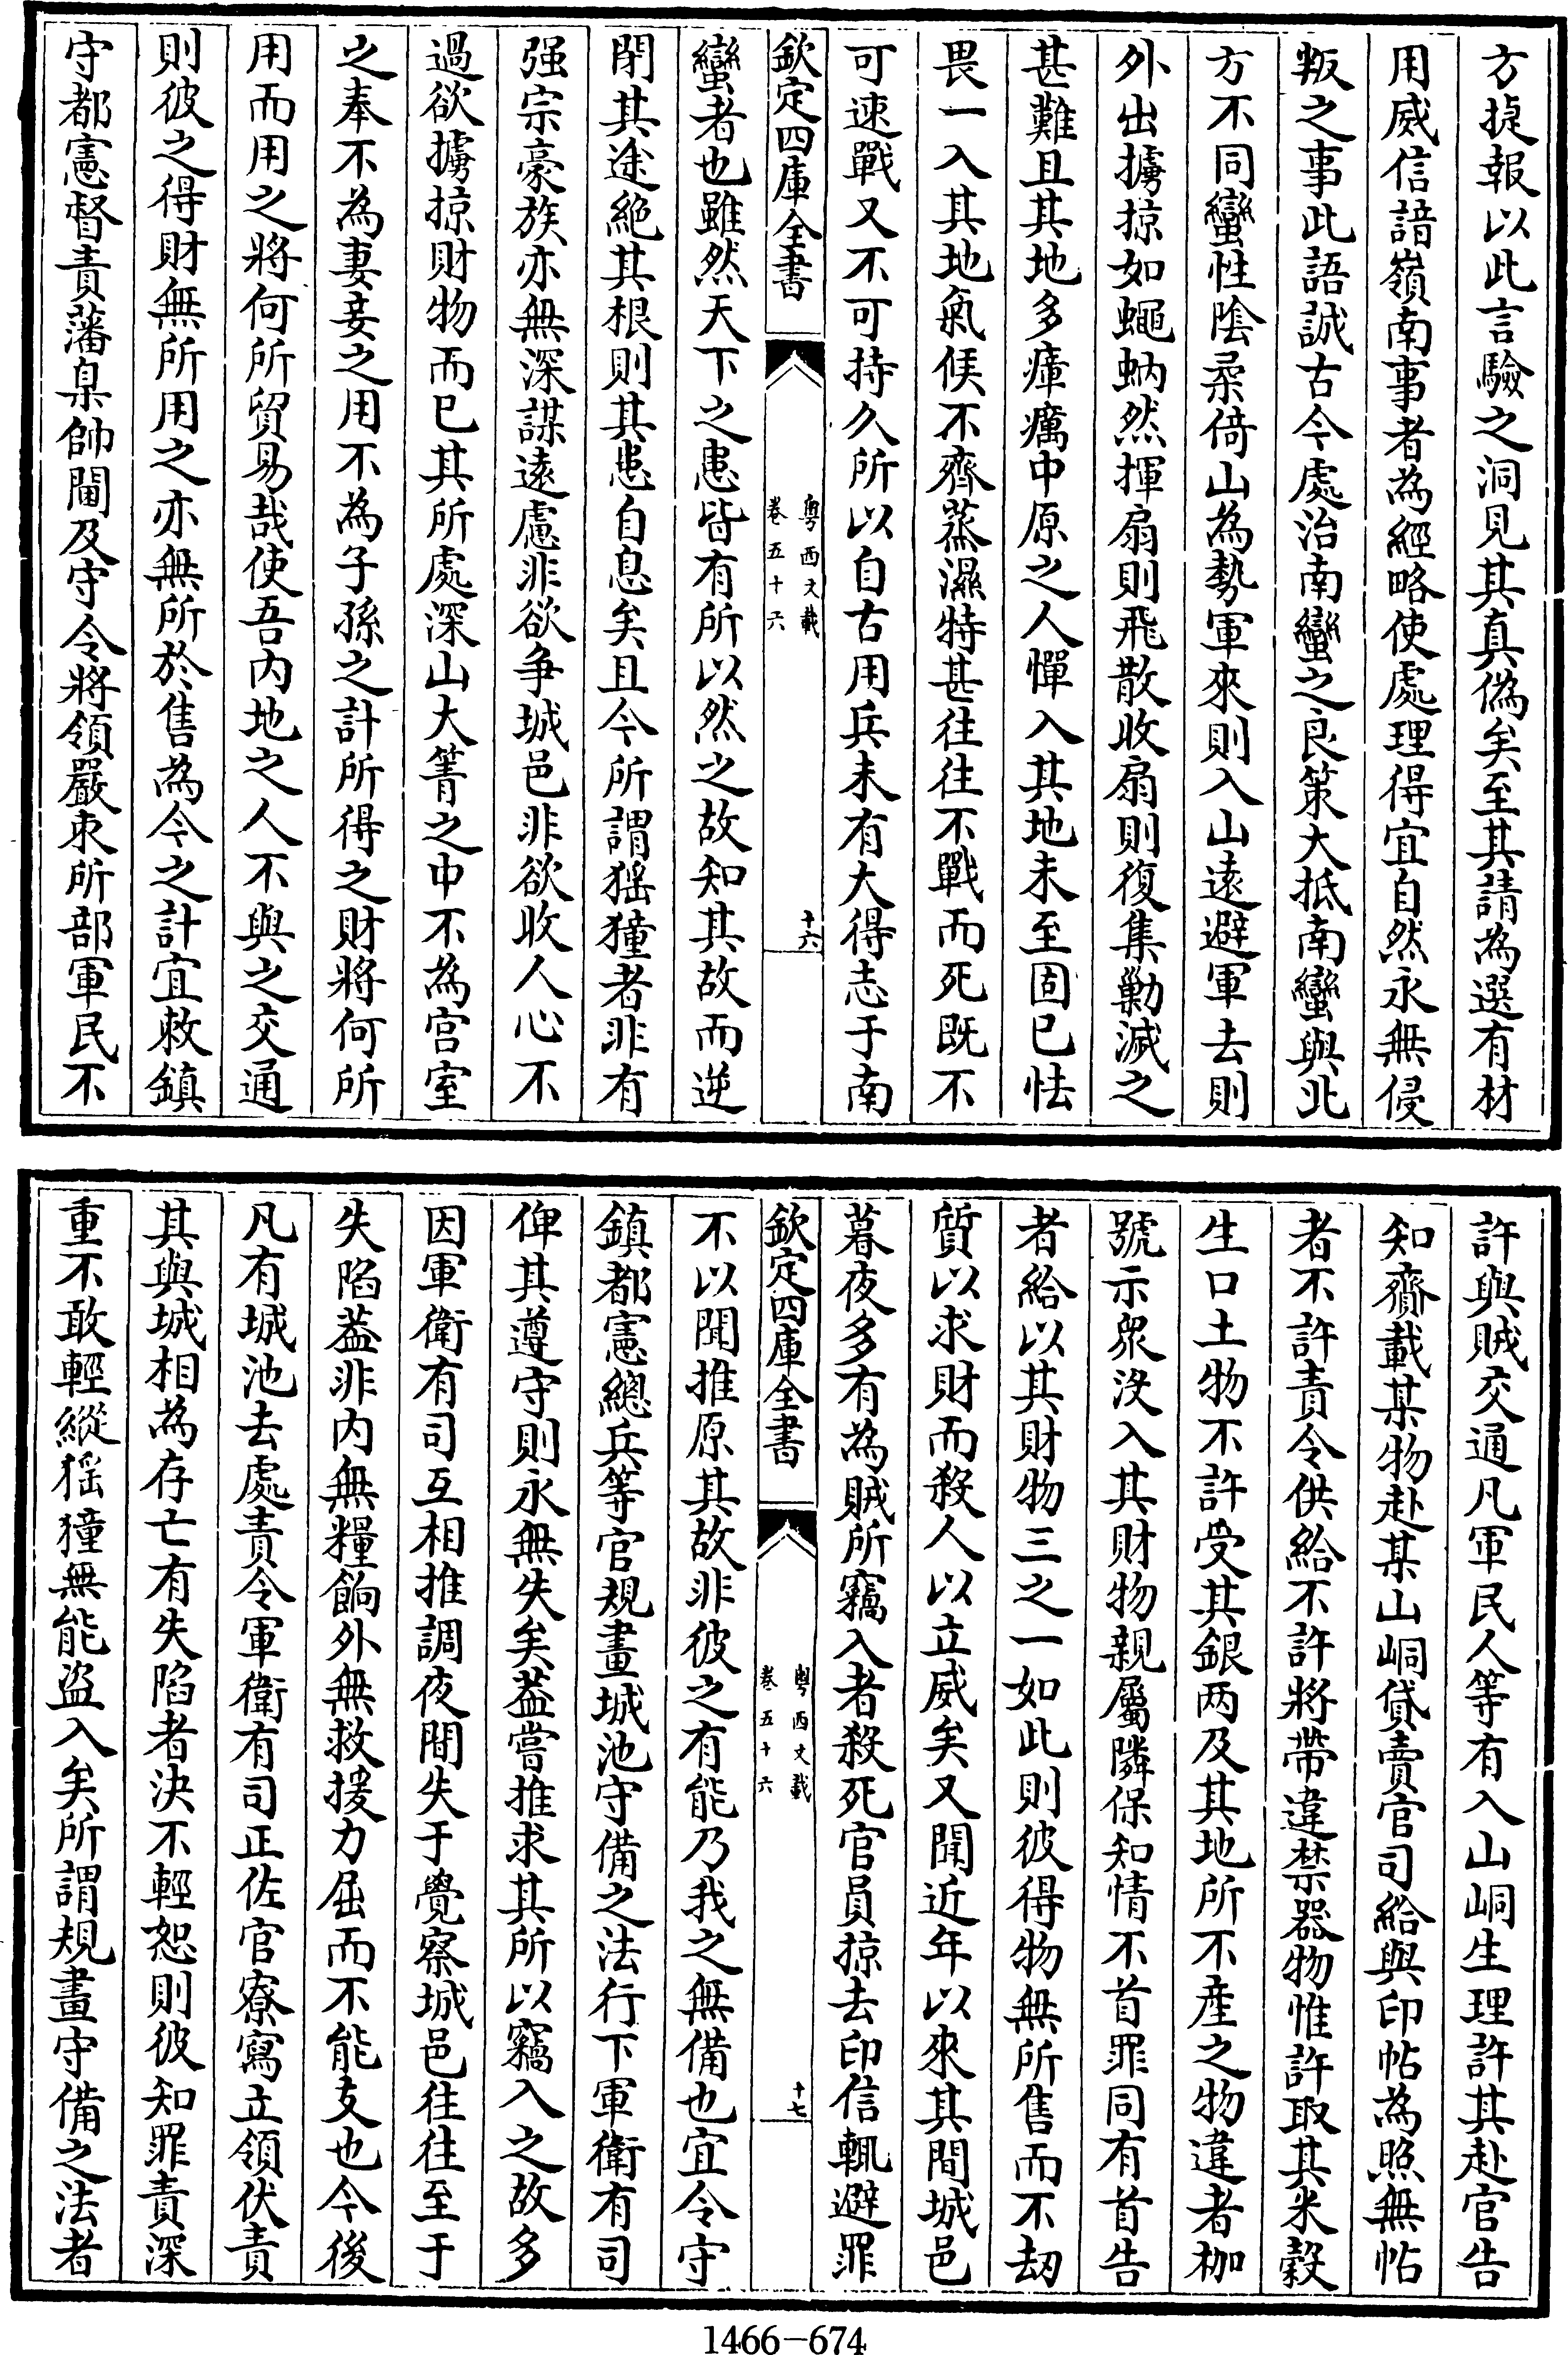 方㨗報以此言驗之洞見其真偽矣至其請為選有材
用威信諳嶺南事者為經略使處理得宜自然永無侵
叛之事此語誠古今處治南蠻之良策大抵南蠻與北
方不同蠻性隂柔倚山為勢軍來則入山遠避軍去則
外出擄掠如蠅蚋然揮扇則飛散收扇則復集勦滅之
甚難且其地多瘴癘中原之人憚入其地未至固已怯
畏一入其地氣候不齊蒸濕特甚往往不戰而死既不
可速戰又不可持久所以自古用兵未有大得志于南
欽定四庫全書
粤西文載
卷五十六
十六
蠻者也雖然天下之患皆有所以然之故知其故而逆
閉其途絶其根則其患自息矣且今所謂猺獞者非有
强宗豪族亦無深謀遠慮非欲争城邑非欲收人心不
過欲擄掠財物而已其所處深山大箐之中不為宫室
之奉不為妻妾之用不為子孫之計所得之財將何所
用而用之將何所貿易哉使吾内地之人不與之交通
則彼之得財無所用之亦無所於售為今之計宜敕鎮
守都憲督責藩臬帥閫及守令將領嚴束所部軍民不
許與賊交通凡軍民人等有入山峒生理許其赴官告
知齎載某物赴某山峒貸賣官司給與印帖為照無帖
者不許責令供給不許將帶違禁器物惟許取其米糓
生口土物不許受其銀两及其地所不産之物違者枷
號示衆沒入其財物親屬隣保知情不首罪同有首告
者給以其財物三之一如此則彼得物無所售而不刼
質以求財而殺人以立威矣又聞近年以來其間城邑
暮夜多有為賊所竊入者殺死官員掠去印信輒避罪
欽定四庫全書
粤西文載
卷五十六
十七
不以聞推原其故非彼之有能乃我之無備也宜令守
鎮都憲總兵等官規畫城池守備之法行下軍衛有司
俾其遵守則永無失矣葢嘗推求其所以竊入之故多
因軍衛有司互相推調夜間失于覺察城邑往往至于
失陷葢非内無糧餉外無救援力屈而不能支也今後
凡有城池去處責令軍衛有司正佐官寮寫立領伏責
其與城相為存亡有失陷者決不輕恕則彼知罪責深
重不敢輕縱猺獞無能盗入矣所謂規畫守備之法者
1466-674